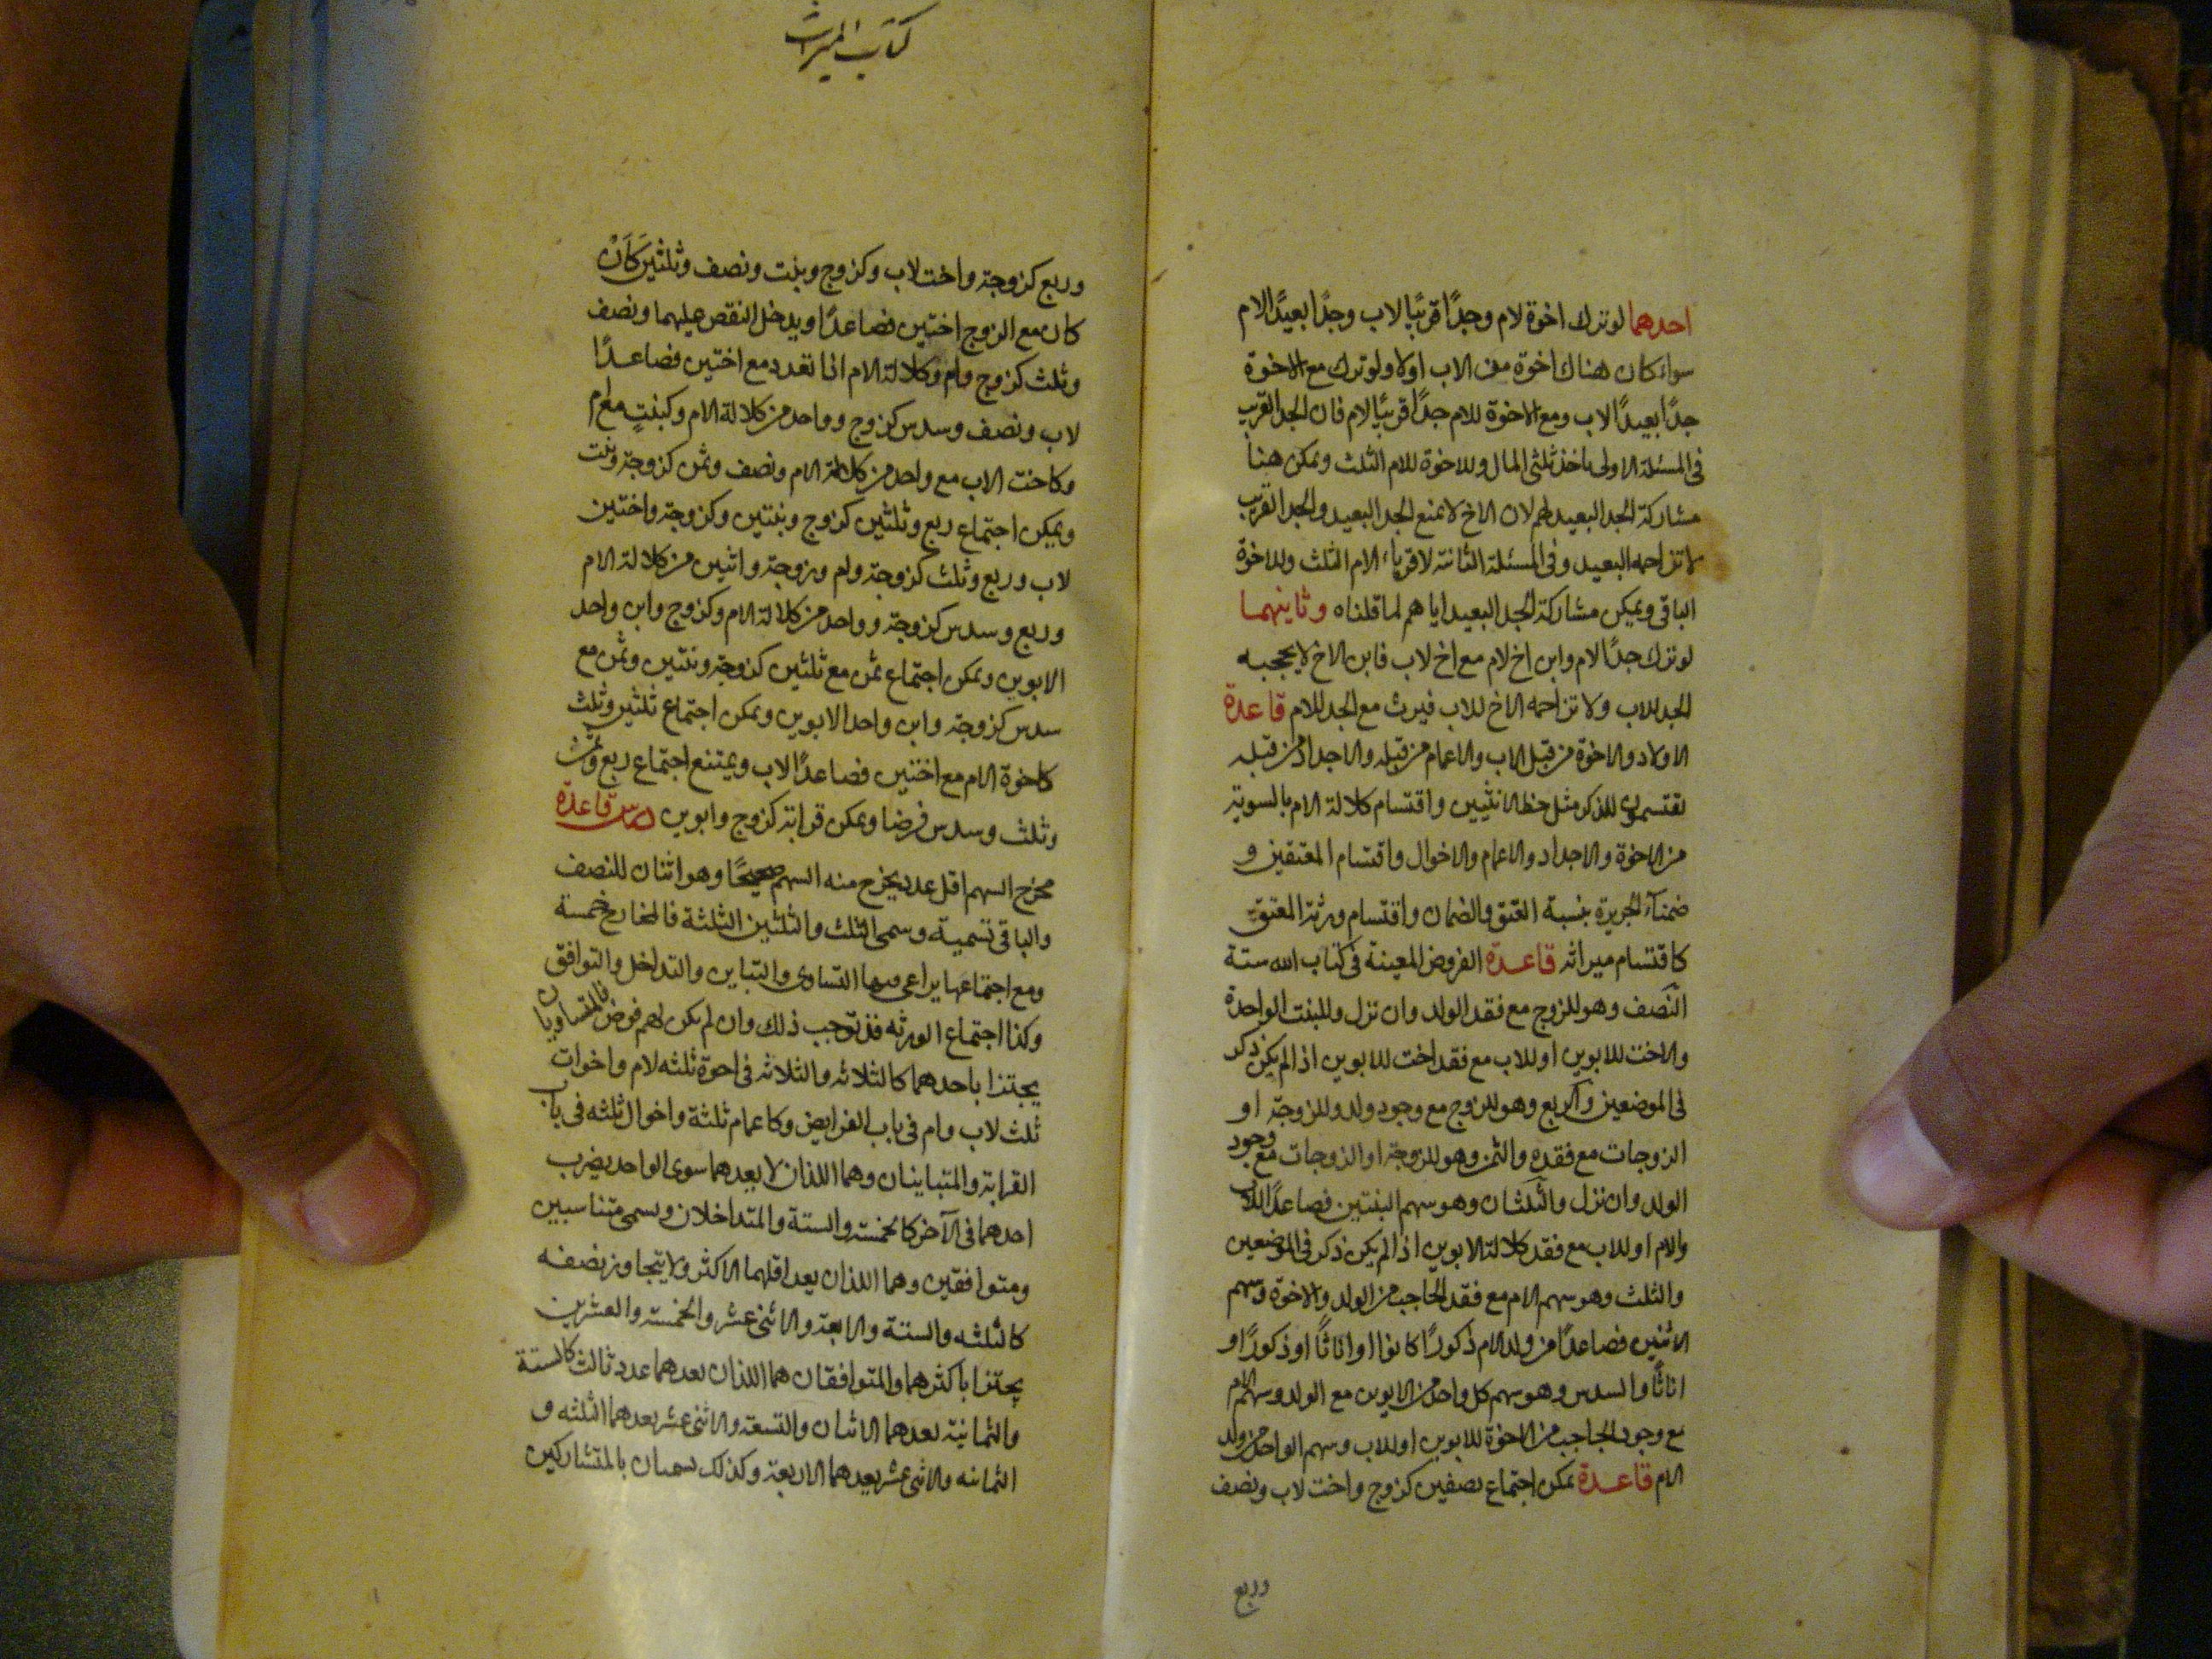 احدهما لوترك اخوة لام وجدًا قريبًا لاب وجدًا بعيدًا لام
سواء كان هناك اخوة من الاب اولا ولوترك مع الاخوة
جدًا بعيدًا لاب ومع الاخوة للام جدًا قريبًا لام فان الجد القريب
فى المسئلة الاولى ياخذ ثلثى المال وللاخوة للام الثلث ويمكن هنا
مشاركة الجد البعيد لهم لان الاخ لا يمنع الجد البعيد والجد القريب
لا تزاحمه البعيد وفى المسئلة الثانية لاقرباء الام الثلث وللاخوة
الباقى ويمكن مشاركة الجد البعيد اياهم لما قلناه وثاينهما
لوترك جدًا لام وابن اخ لام مع اخ لاب فابن الاخ لا يحجبه
الجد للاب ولا تزاحمه الاخ للاب فيرث مع الجد للام قاعدة
الاولاد والاخوة من قبل الاب والاعمام من قبله والاجداد من قبله
يقتسمون للذكر مثل حظ الانثيين واقتسام كلالة الام بالسوية
من الاخوة والاجداد والاعمام والاخوال واقتسام المعتقين و
ضمنآء الجريرة بنسبة العتق والضمان واقتسام ورثة المعتق
كاقتسام ميراثه قاعدة الفروض المعينة فى كتاب الله ستة
النصف وهو للزوج مع فقد الولد وان نزل وللبنت الواحدة
والاخت للابوين او للاب مع فقد اخت للابوين اذا لم يكن ذكر
فى الموضعين والربع وهو للزوج مع وجود ولد وللزوجة او
الزوجات مع فقده والثمن وهو للزوجة او الزوجات مع وجود
الولد وان نزل والثلثان وهو سهم البنتين فصاعدًا للاب
والام او للاب مع فقد كلالة الابوين اذا لم يكن ذكر فى الموضعين
والثلث وهو سهم الام مع فقد الحاجب من الولد والاخوة وسهم
الاثنين فصاعدًا من ولد الام ذكورًا كانوا او اناثًا او ذكورًا و
اناثًا والسدس وهو سهم كل واحد من الابوين مع الولد وسهم الام
مع وجود الحاجب من الاخوة للابوين او للاب وسهم الواحد من ولد
الام قاعدة يمكن اجتماع نصفين كزوج واخت لاب ونصف
وربع
كتاب الميراث
وربع كزوجة واخت لاب وكزوج وبنت ونصف وثلثين كان
كان مع الزوج اختين فصاعدًا ويدخل النقص عليهما ونصف
وثلث كزوج وام وكلالة الام اذا تعدد مع اختين فصاعدًا
لاب ونصف وسدس كزوج وواحد من كلالة الام وكبنتٍ مع ام
وكاخت الاب مع واحد من كلالة الام ونصف وثمن كزوجة وبنت
ويمكن اجتماع ربع وثلثين كزوج وبنتين وكزوجة واختين
لاب وربع وثلث كزوجة وام وزوجة واثنين من كلالة الام
وربع وسدس كزوجة وواحد من كلالة الام وكزوج وابن واحد
الابوين ويمكن اجتماع ثمن مع ثلثين كزوجة وبنتين وثمن مع
سدس كزوجة وابن واحد الابوين ويمكن اجتماع ثلثين وثلث
كاخوة الام مع اختين فصاعدًا لاب ويمتنع اجتماع ربع وثمن
وثلث وسدس فرضا ويمكن قرابة كزوج وابوين قاعدة
مخرج السهم اقل عدد يخرج منه السهم صحيحًا وهو اثنان للنصف
والباقى تسمية وسمى الثلث والثلثين الثلثة فالمخارج خمسة
ومع اجتماعها يراعى فيها التساوى والتباين والتداخل والتوافق
وكذا اجتماع الورثه قد توجب ذلك وان لم يكن لهم فروض فالمتساويان
يجتزا باحدهما كالثلاثه والثلاثه فى اخوة ثلثه لام واخوات
ثلث لاب وام فى باب الفرايض وكاعمام ثلثة واخوال ثلثه فى باب
القرابة والمتباينان وهما اللذان لا يعدهما سوى الواحد يضرب
احدهما فى الآخر كالخمسة والستة والمتداخلان ويسمى متناسبين
ومتوافقين وهما اللذان يعد اقلهما الاكثر ولا يتجاوز نصفه
كالثلثه والستة والاربعة والاثنى عشر والخمسة والعشرين
يجتزا باكثرهما والمتوافقان هما اللذان يعدهما عدد ثالث كالستة
والثمانية يعدهما الاثنان والتسعة والاثنى عشر يعدهما الثلثه و
الثمانيه والاثنى عشر يعدهما الاربعة وكذلك يسميان بالمتشاركين